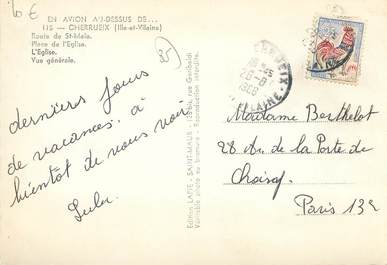 10 €
EN AVION AU-DESSUS DE...
115 - CHERRUEIX (Ille-et-Vilaine)
Route de St-Malo.
Place de l'Eglise.
L'Eglise.
Vue générale.
35
derniers jours
de vacances. à
bientôt de vous voir
Lulu.
Edition LAPIE - SAINT-MAUR - bis, rue Garibaldi
Véritable photo au bromure - Reproduction interdite.
CHERRUEIX
18 -45
26-8
1968
VILAINE
Madame Berthelot
28 Av. de la Porte de
Choisy
Paris 13e